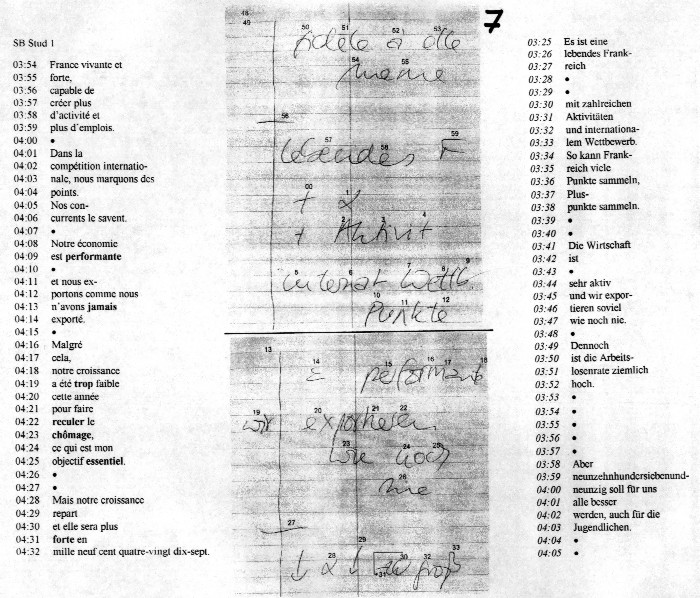 7
SB Stud 1
03:54 France vivante et
03:55 forte,
03:56 capable de
03:57 créer plus
03:58 d'activité et
03:59 plus d'emplois.
04:00 •
04:01 Dans la
04:02 compétition internatio-
04:03 nale, nous marquons des
04:04 points.
04:05 Nos con-
04:06 currents le savent.
04:07 •
04:08 Notre économie
04:09 est performante
04:10 •
04:11 et nous ex-
04:12 portons comme nous
04:13 n'avons jamais
04:14 exporté.
04:15 •
04:16 Malgré
04:17 cela,
04:18 notre croissance
04:19 a été trop faible
04:20 cette année
04:21 pour faire
04:22 reculer le
04:23 chômage,
04:24 ce qui est mon
04:25 objectif essentiel.
04:26 •
04:27 •
04:28 Mais notre croissance
04:29 repart
04:30 et elle sera plus
04:31 forte en
04:32 mille neuf cent quatre-vingt dix-sept.
48
49
50 51 52 53
fidèle à elle
54 55
même
56
57 58 59
lebendes F
00 1
+ α
2 3 4
+ Aktivit
5 6 7 8 9
internat Wettb
10 11 12
Punkte
13
14 15 16 17 18
performante
19 20 21 22
wir exportieren
23 24 25
wie noch
26
nie
27
28 29 30 31 32 33
↓ α ↓ groß
03:25 Es ist eine
03:26 lebendes Frank-
03:27 reich
03:28 •
03:29 •
03:30 mit zahlreichen
03:31 Aktivitäten
03:32 und internationa-
03:33 lem Wettbewerb.
03:34 So kann Frank-
03:35 reich viele
03:36 Punkte sammeln,
03:37 Plus-
03:38 punkte sammeln.
03:39 •
03:40 •
03:41 Die Wirtschaft
03:42 ist
03:43 •
03:44 sehr aktiv
03:45 und wir expor-
03:46 tieren soviel
03:47 wie noch nie.
03:48 •
03:49 Dennoch
03:50 ist die Arbeits-
03:51 losenrate ziemlich
03:52 hoch.
03:53 •
03:54 •
03:55 •
03:56 •
03:57 •
03:58 Aber
03:59 neunzehnhundersiebenund-
04:00 neunzig soll für uns
04:01 alle besser
04:02 werden, auch für die
04:03 Jugendlichen.
04:04 •
04:05 •